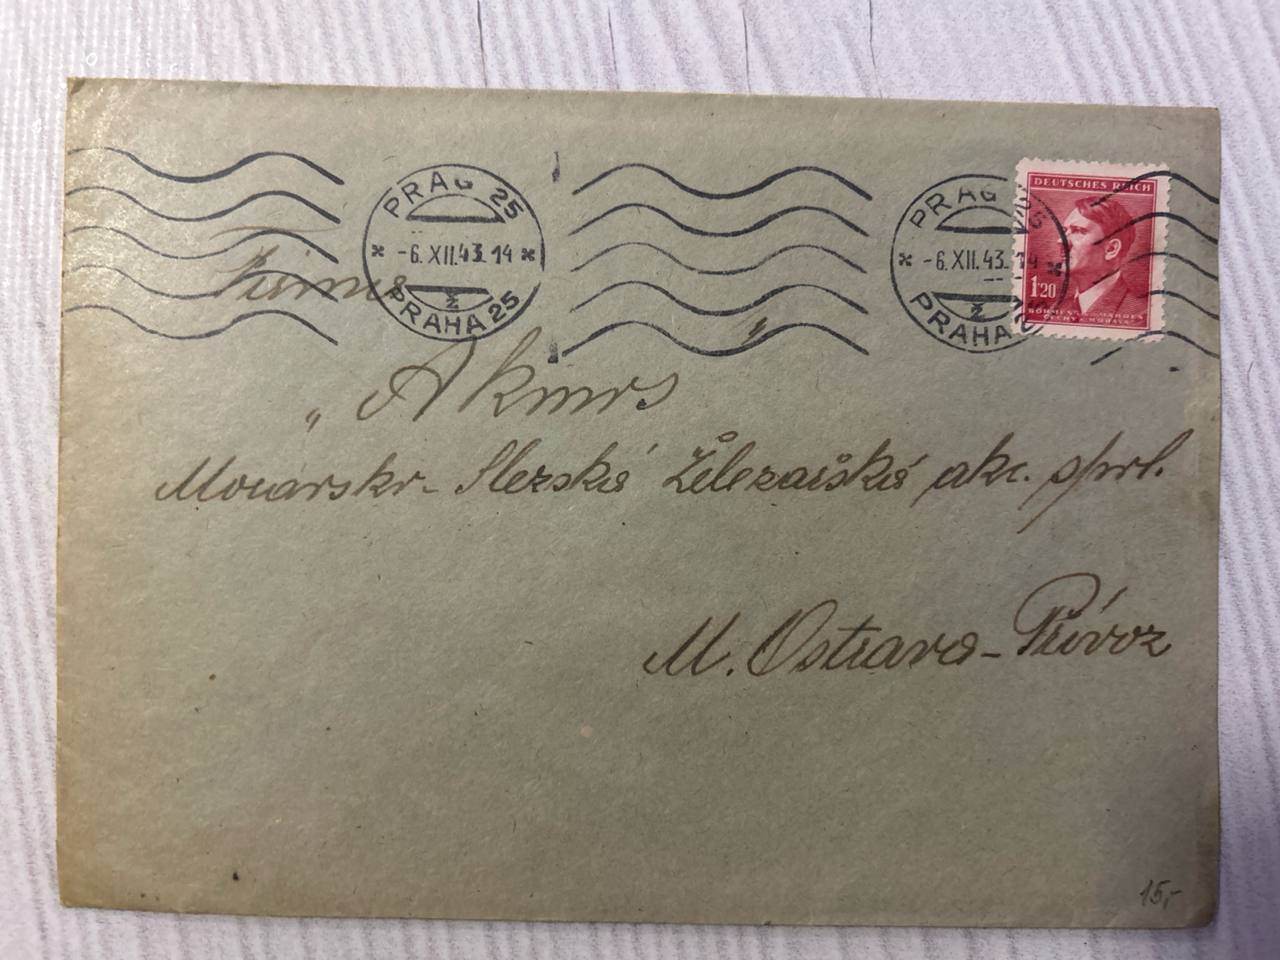 PRAG 25
-6.XII.43.14
2
PRAHA 25
PRAG 25
-6.XII.43.14
2
PRAHA 25
DEUTSCHES REICH
1'20
BÖHMEN U. MÄHREN
ČECHY A MORAVA
Firma
„Akmos"
Moravsko-Slezská Železařská akc. spol.
M. Ostrava-Přívoz
15,-